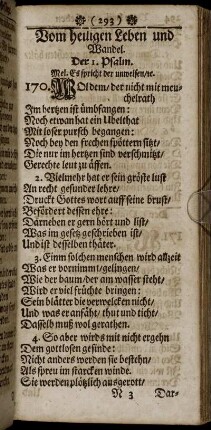 (293)
Vom heiligen Leben und
Wandel.
Der 1. Psalm.
Mel. Es spricht der unweisen/ꝛc.
170. Wol dem/ der nicht mit meu-
chelrath
Im hertzen ist ümbfangen:
Noch etwan hat ein Ubelthat
Mit loser pursch begangen:
Noch bey den frechen spöttern sitzt/
Die nur im hertzen sind verschmitzt/
Gerechte leut zu äffen.
2. Vielmehr hat er sein gröste lust
An recht gesunder lehre/
Druckt Gottes wort auff seine brust/
Befördert dessen ehre:
Darneben er gern hört und list/
Was im gesetz geschrieben ist/
Und ist desselben thäter.
3. Eimm solchen menschen wird allzeit
Was er vornimmt/ gelingen/
Wie der baum/ der am wasser steht/
Wird er viel früchte bringen:
Sein blätter die verwelcken nicht/
Und was er anfäht/ thut und ticht/
Dasselb muß wol gerathen.
4. So aber wirds mit nicht ergehn
Dem gottlosen gesinde:
Nicht anders werden sie bestehn/
Als spreu im starcken winde.
Sie werden plötzlich ausgerott/
N 3 Dar-